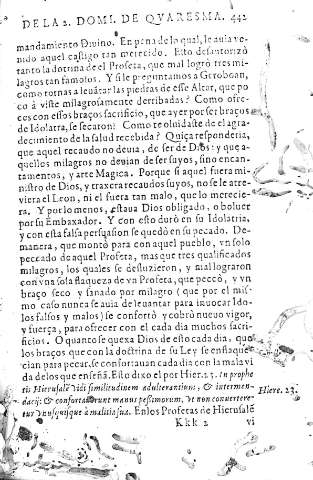 DE LA 2. DOM. DE QVARESMA. 442
mandamiento Divino. En pena de lo qual, le auia ve-
nido aquel castigo tan merecido. Esto desautorizó
tanto la dotrina de el Profeta, que mal logró tres mi-
lagros tan famosos. Y si le preguntamos a Geroboan,
como tornas a leuãtar las piedras de esse Altar, que po
co â viste milagrosamente derribadas? Como ofre-
ces con essos braços sacrificio, que ayer por ser braços
de Idolatra, se secaron? Como te oluidaste de el agra-
decimiento de la salud recebida? Quiça responderia,
que aquel recaudo no deuia, de ser de Dios: y que a-
quellos milagros no deuian de ser suyos, sino encan-
tamentos, y arte Magica. Porque si aquel fuera mi-
nistro de Dios, y traxera recaudos suyos, no se le atre-
viera el Leon, ni el fuera tan malo, que lo merecie-
ra. Y por lo menos, estaua Dios obligado, o boluer
por su Embaxador. Y con esto durô en su Idolatria,
y con esta falsa persuasion se quedô en su pecado. De-
manera, que montô para con aquel pueblo, vn solo
peccado de aquel Profeta, mas que tres qualificados
milagros, los quales se desluzieron, y mal lograron
con vna sola flaqueza de vn Profeta, que peccô, y vn
braço seco y sanado por milagro (que por el mis-
mo caso nunca se auia de leuantar para inuocar Ido-
los falsos y malos) se confortô y cobrô nueuo vigor,
y fuerça, para ofrecer con el cada dia muchos sacri-
ficios. O quanto se quexa Dios de esto cada dia, que
los braços que con la doctrina de su Ley se enflaque
cian para pecar, se confortauan cada dia con la mala vi
da de los que enseñã. Esto dixo el por Hier. 23. In prophe
tis Hierusalẽ vidi similitudinem adulterantium, & iter men-
dacij: & confortauerunt manus pessimorum, vt non conuertere-
tur vnusquisque à malitia sua. En los Profetas de Hierusalẽ
Hiere. 23.
Kkk 2 vi